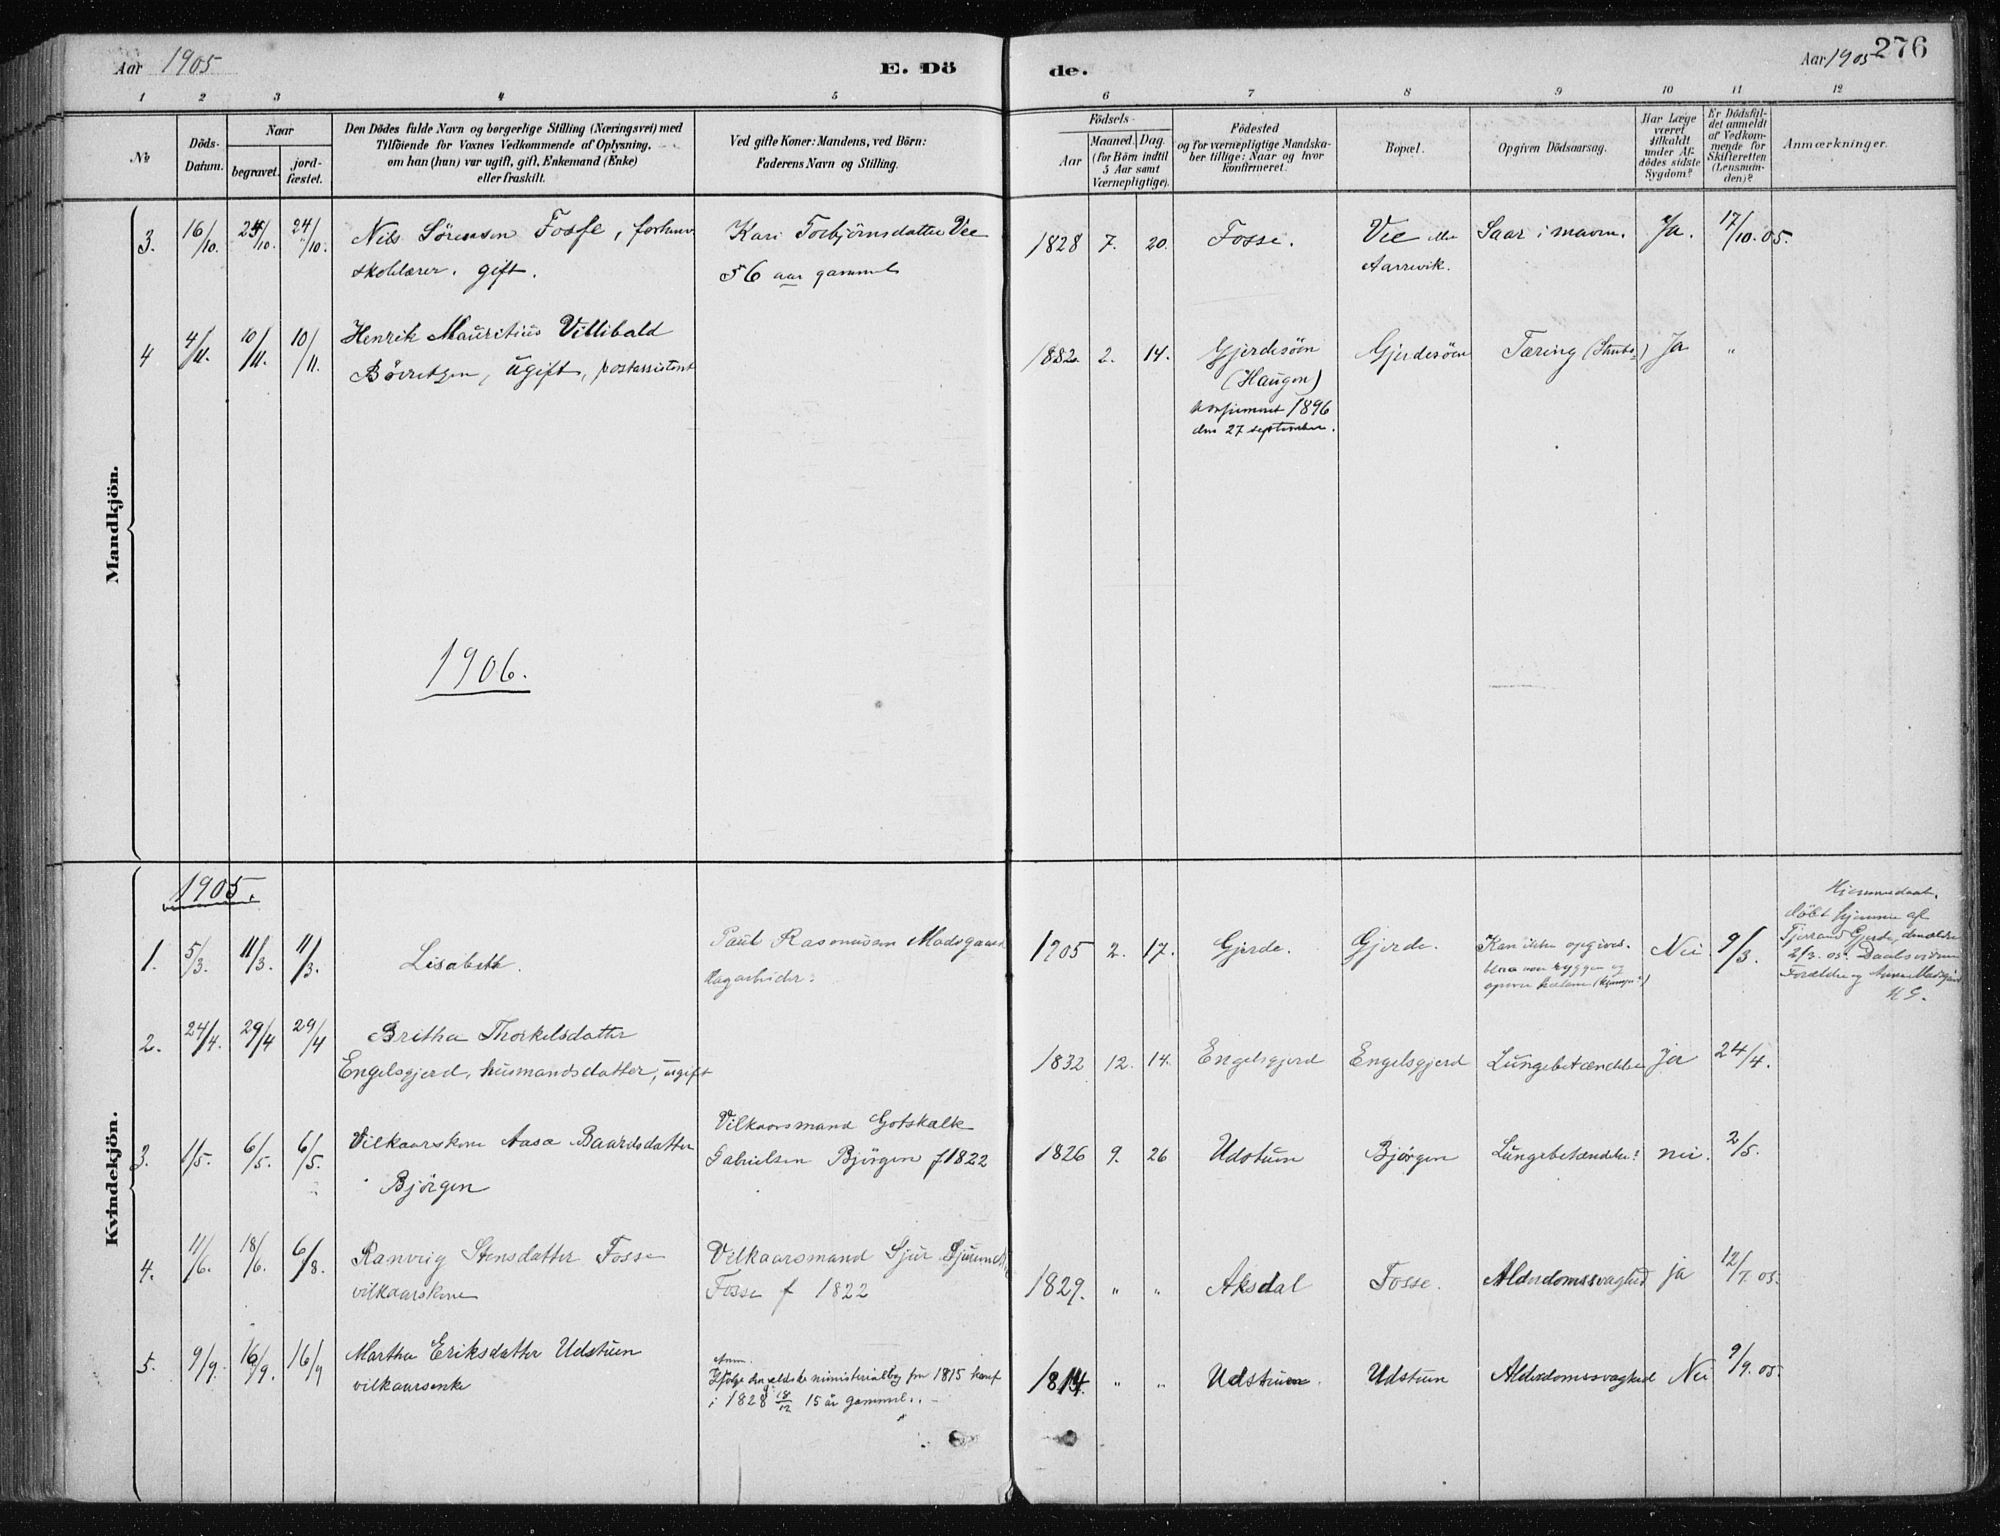 Aar 1905
E. Dö
de.
Aar 1905
276
1 2 3 4 5 6 7 8 9 10 11 12
No
Döds-
Datum.
Naar
begravet.
jord-
fæstet.
Den Dödes fulde Navn og borgerlige Stilling (Næringsvei) med
Tilföiende for Voxnes Vedkommende af Oplysning,
om han (hun) var ugift, gift, Enkemand (Enke)
eller fraskilt.
Ved gifte Koner: Mandens, ved Börn:
Faderens Navn og Stilling.
Födsels-
Aar
Maaned. Dag.
(for Börn indtil
5 Aar samt
Værnepligtige).
Födested
og for værnepligtige Mandska-
ber tillige: Naar og hvor
konfirmeret.
Bopæl.
Opgiven Dödsaarsag.
Har Læge
været
tilkaldt
under Af-
dödes sidste
Sygdom?
Er Dödsfal-
det anmeldt
af Vedkom-
mende for
Skifteretten
(Lensman-
den)?
Anmærkninger.
Mandkjön.
3. 16/10. 24/10. 24/10. Nils Sörensen Fosse, forhenv.
skolelærer. gift.
Kari Torbjörnsdatter Vee
56 aar gammel
1828 7. 20. Fosse. Vee eller
Aarrevik.
Saar i maven. Ja. 17/10.05.
4 4/11. 10/11. 10/11. Henrik Mauritius Villibald
Bövretsen, ugift, postassistent
1882. 2. 14. Gjerdesöen
(Haugen)
konfirmeret 1896
den 27 september.
Gjerdesöen Tæring (Strube) Ja "
1906.
Kvindekjön.
1905.
1. 5/3. 11/3. 11/3. Lisabeth.
Paul Rasmussen Madsgaard
dagarbeider.
1905 2. 17. Gjerde. Gjerde. Kan ikke opgives.
blaa over ryggen og
Nei 9/3.
Hjemmedaab.
döbt hjemme af
Tjerrand Gjerde,
2/3. 05. Daabsvidner
Forældre og
2. 24/4. 29/4 29/4 Britha Thorkelsdatter
Engelsgjerd, husmandsdatter, ugift
1832 12. 14. Engelsgjerd Engelsgjerd Lungebetændelse ja 24/4.
3. 1/5. 6/5. 6/5. Vilkaarskone Aasa Baardsdatter
Björgen
Vilkaarsmand Gotskalk
Gabrielsen Björgen f 1822
1826 9. 26 Udstuen Björgen Lungebetændelse? nei. 2/5.
4. 11/6. 18/6. 6/8. Ranveig Stensdatter Fosse
vilkaarskone
Vilkaarsmand Sjur Sjursen
Fosse f 1822
1829. " " Aksdal Fosse. Alderdomssvaghed ja 12/7 05.
5. 9/9. 16/9. 16/9 Martha Eriksdatter Udstuen
vilkaarsenke
Anm.
Ifölge den ældste ministerialbog fra 1815 konf
i 1828 15 år gammel.
1814. " " Udstuen. Udstuen Alderdomssvaghed Nei 9/9.05.